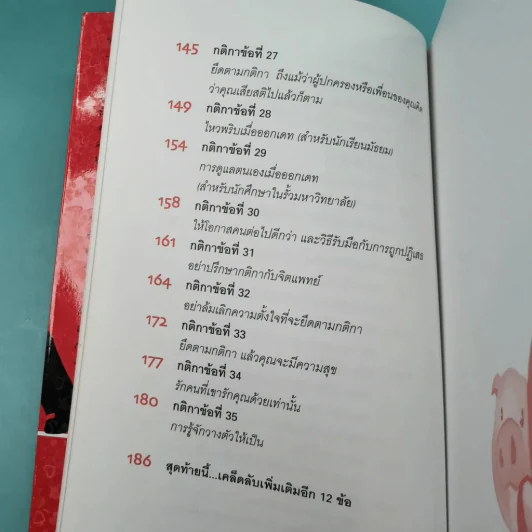 145 กติกาข้อที่ 27
ยึดตามกติกา ถึงแม้ว่าผู้ปกครองหรือเพื่อนของคุณคิด
ว่าคุณเสียสติไปแล้วก็ตาม
149 กติกาข้อที่ 28
ไหวพริบเมื่อออกเดท (สำหรับนักเรียนมัธยม)
154 กติกาข้อที่ 29
การดูแลตนเองเมื่อออกเดท
(สำหรับนักศึกษาในรั้วมหาวิทยาลัย)
158 กติกาข้อที่ 30
ให้โอกาสคนต่อไปดีกว่า และวิธีรับมือกับการถูกปฏิเสธ
161 กติกาข้อที่ 31
อย่าปรึกษากติกากับจิตแพทย์
164 กติกาข้อที่ 32
อย่าล้มเลิกความตั้งใจที่จะยึดตามกติกา
172 กติกาข้อที่ 33
ยึดตามกติกา แล้วคุณจะมีความสุข
177 กติกาข้อที่ 34
รักคนที่เขารักคุณด้วยเท่านั้น
180 กติกาข้อที่ 35
การรู้จักวางตัวให้เป็น
186 สุดท้ายนี้...เคล็ดลับเพิ่มเติมอีก 12 ข้อ